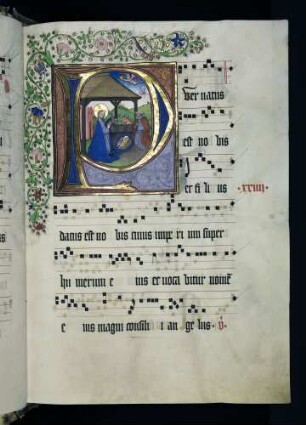 P
Uer natus
est no bis
et fi li us xxiiij
datus est no bis cuius impe ri um super
hu merum e ius et vocabitur nomē
e ius magni consili i an ge lus v̓